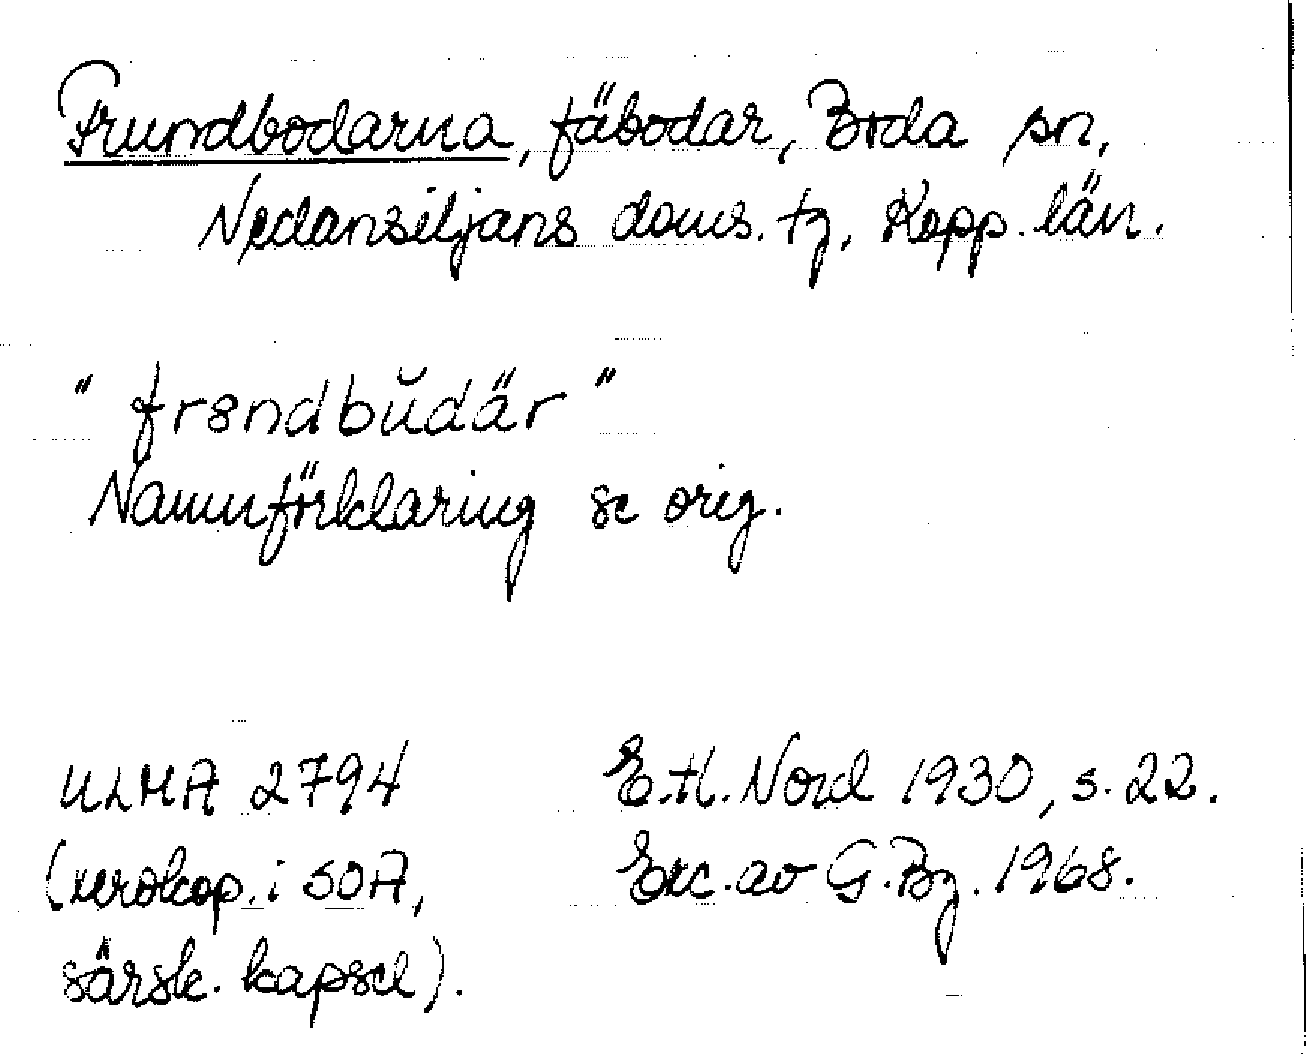 Frundbodarna, fäbodar, Boda sn,
Nedansiljans doms. tg, Kopp. län.
" frɞndbŭdär "
Namnförklaring se orig.
ULMA 2794
(xerokop. i SOA,
särsk. kapsel).
E.H. Nord 1930, s. 22.
Exc. av G.Bg. 1968.